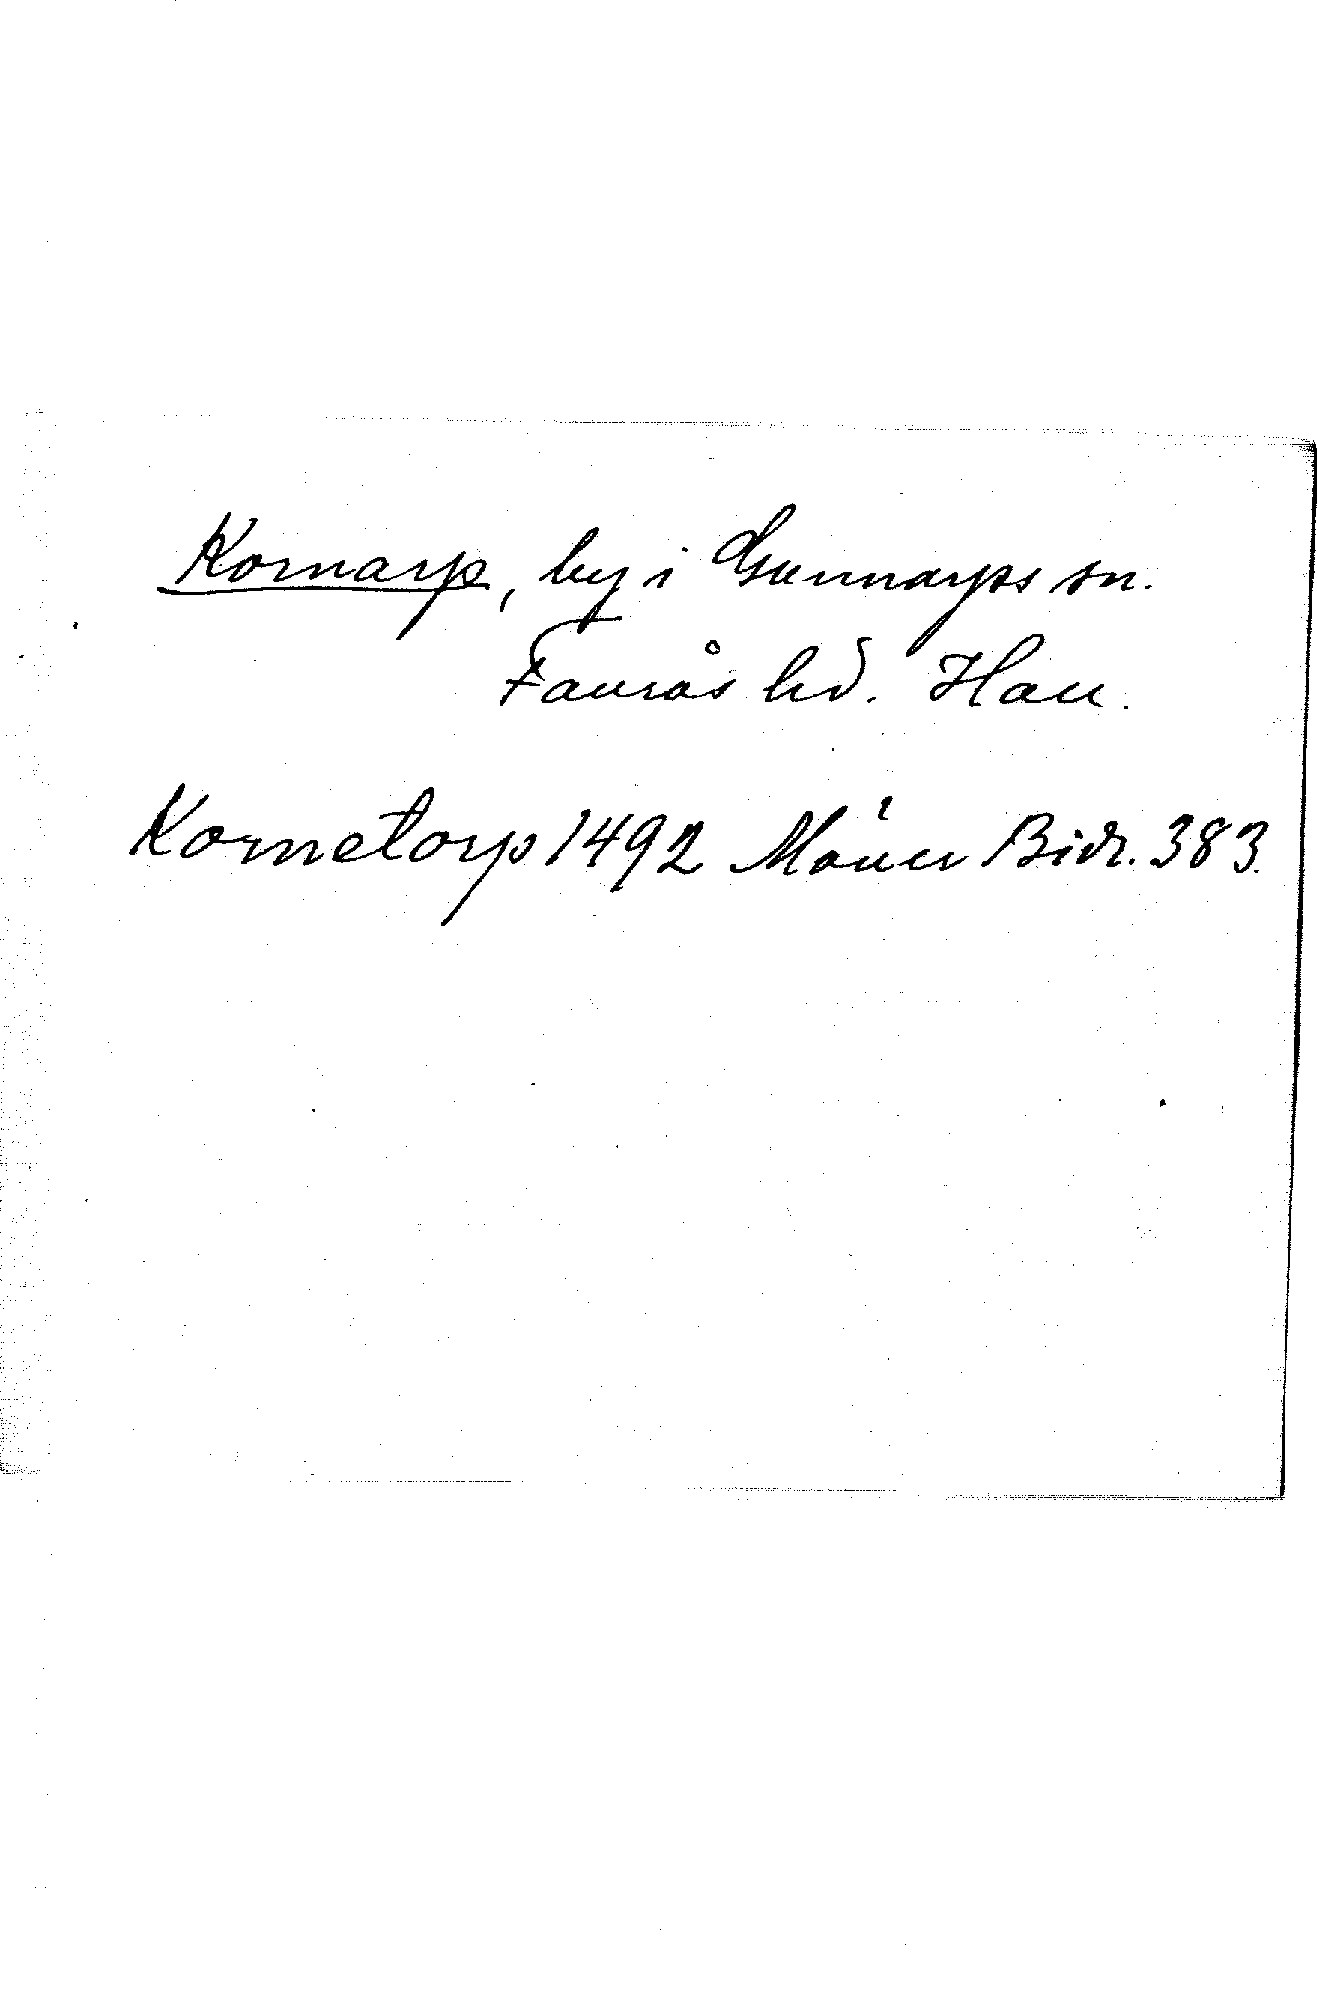 Kornarp, by i Gunnarps sn.
Faurås hd. Hall.
Kornetorp 1492 Bidr. 383.